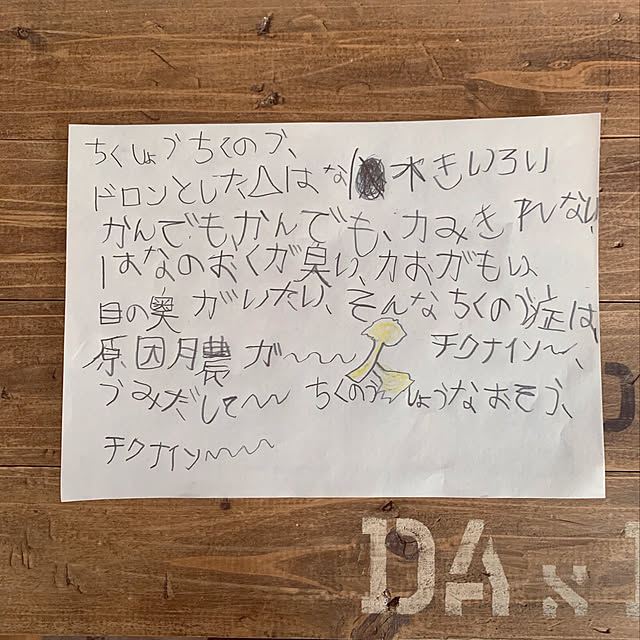 ちくしょうちくのう、
ドロンとした△はな水きいろい
かんでも、かんでも、カみきれない
はなのおくが臭い、カおがもい、
目の奥がいたい、そんなちくのう症は、
原因膿が〜〜〜 チクナイン〜、
うみだして〜〜 ちくのう〜しょうなおそう、
チクナイン〜〜〜
DA